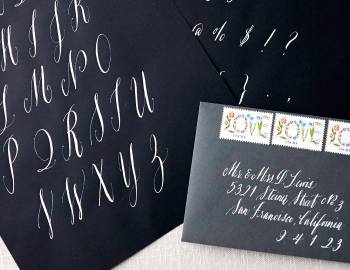 I J K
L M N O
P Q R S T U
V W X Y Z
@ % $ ! ?
} . ,
LOVE
LOVE
Mr. & Mrs. J Lewis
5321 Steiner Street
San Francisco, California
9 4 1 2 3